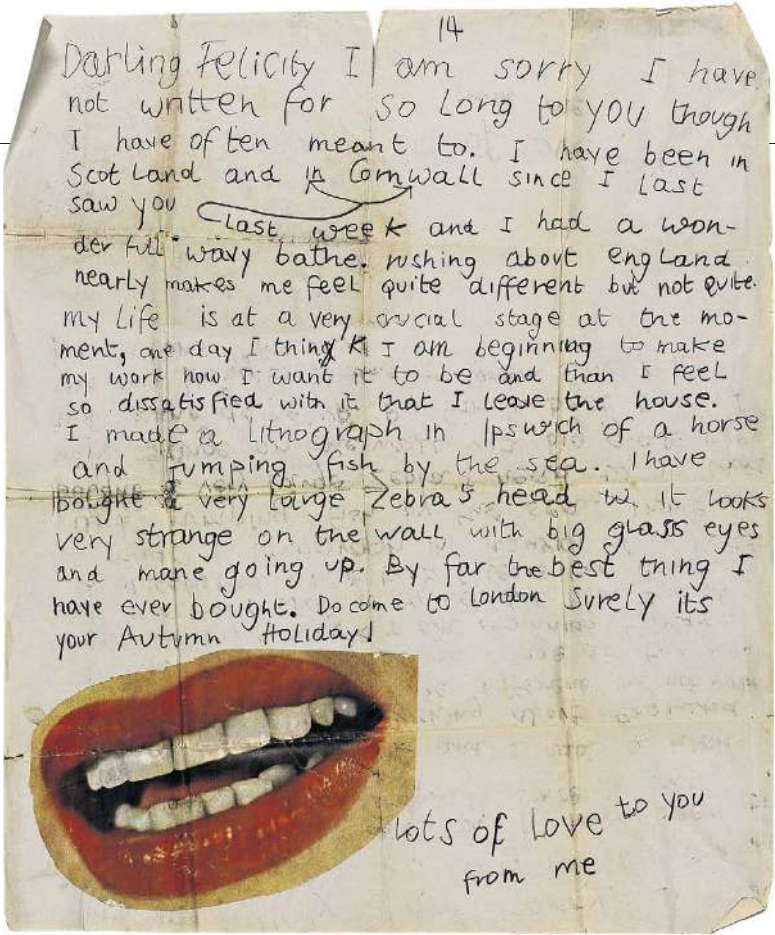 14
Darling Felicity I am sorry I have
not written for so long to you though
I have often meant to. I have been in
Scotland and in Cornwall since I last
saw you
last week and I had a won-
derfull wavy bathe. rushing about england
nearly makes me feel quite different but not quite.
my life is at a very crucial stage at the mo-
ment, one day I think I am beginning to make
my work how I want it to be and than I feel
so dissatisfied with it that I leave the house.
I made a lithograph in Ipswich of a horse
and jumping fish by the sea. I have
bought a very large Zebra's head it looks
very strange on the wall with big glass eyes
and mane going up. By far the best thing I
have ever bought. Do come to London surely its
your Autumn Holiday!
lots of love to you
from me